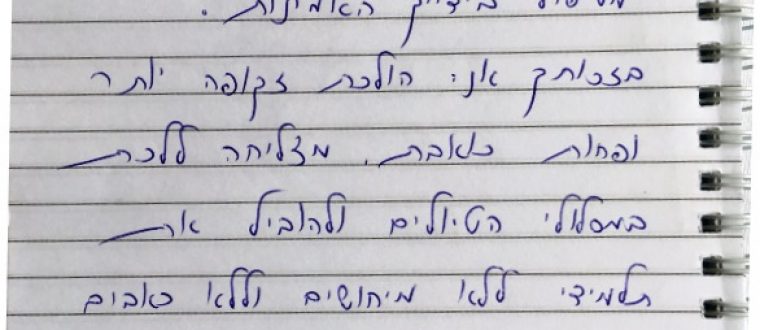 האמינות.
בזכותך אני הולכת זקופה יותר
ופחות כואבת. מצליחה ללכת
במסלולי הטיולים ולהוביל את
תלמידי ללא מיחושים וללא כאבים